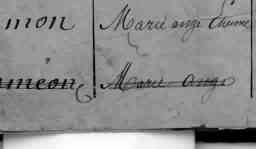 imon Marie ange Etienne
imeon Marie ange